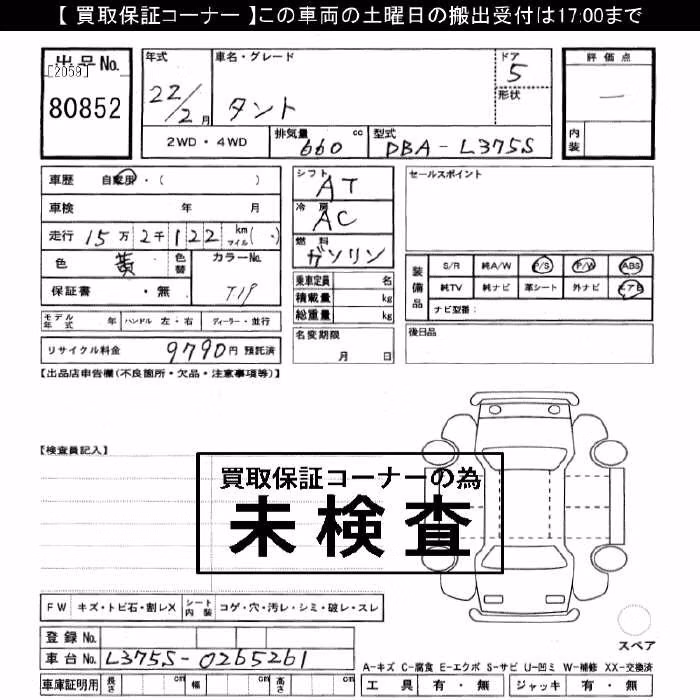 【 買取保証コーナー 】この車両の土曜日の搬出受付は17:00まで
出品No.
[2059]
80852
年式
22/2月
車名・グレード
タント
ドア
5
形状
評価点
一
内装
2WD・4WD
排気量 660 cc
型式 DBA-L375S
車歴 自家用・( )
車検 年 月
走行 15万2千122 km マイル( )
色 黄 色替
カラーNo. T19
保証書 ・無
シフト AT
冷房 AC
燃料 ガソリン
乗車定員 名
積載量 kg
総重量 kg
セールスポイント
装備品
S/R 純A/W P/S P/W ABS
純TV 純ナビ 革シート 外ナビ エアB
ナビ型番：
モデル年式 年 ハンドル 左・右 ディーラー・並行
名変期限
月 日
後日品
リサイクル料金 9790円 預託済
【出品店申告欄(不良箇所・欠品・注意事項等)】
【検査員記入】
買取保証コーナーの為
未検査
FW キズ・トビ石・割レX シート内装 コゲ・穴・汚レ・シミ・破レ・スレ
登録No.
車台No. L375S-0265261
車庫証明用 長さ cm 幅 cm 高さ cm
スペア
A-キズ C-腐食 E-エクボ S-サビ U-凹ミ W-補修 XX-交換済
工具 有・無 ジャッキ 有・無